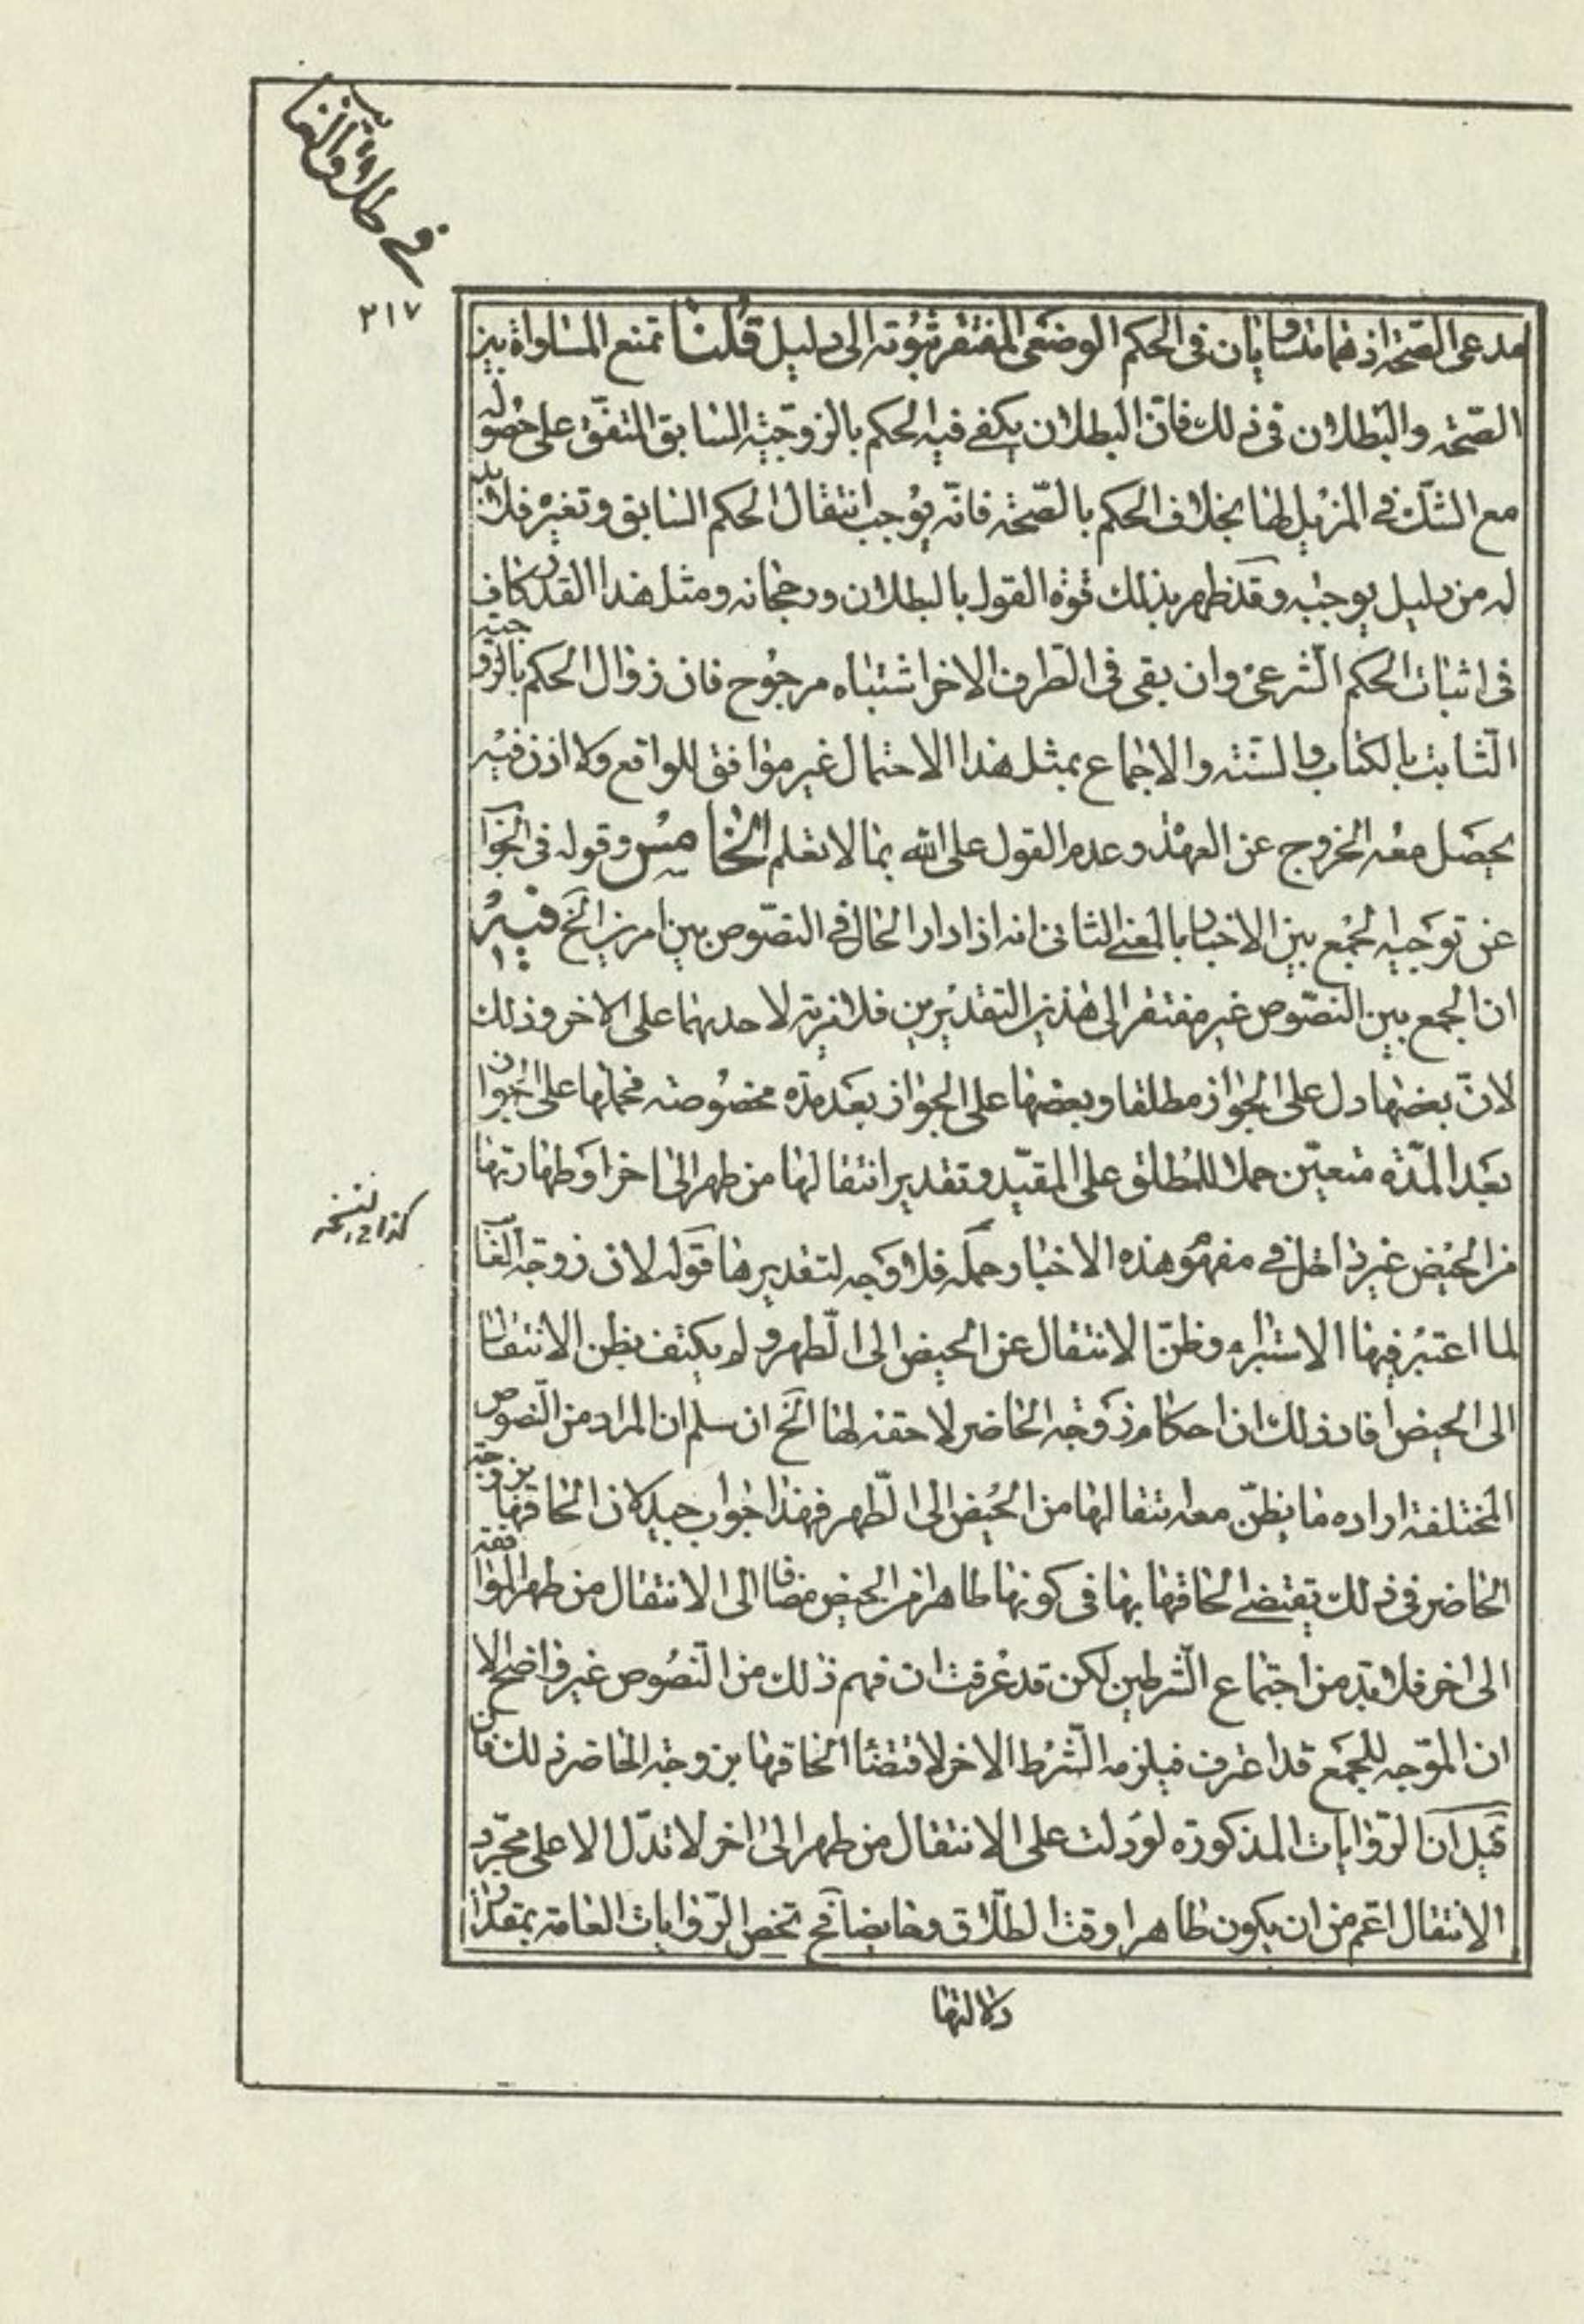 في طلاق الغائب
٢١٧
مدعى الصّحة اذ هما متساويان فى الحكم الوضعى المفتقر ثبوته الى دليل قلنا نمنع المساواة بين
الصّحة والبطلان فى ذلك فان البطلان يكفى فيه الحكم بالزوجيّة السابق المتفق على حصوله
مع الشك فى المزيل لها بخلاف الحكم بالصّحة فانّه يوجب انتقال الحكم السابق وتغيره فلا بد
له من دليل يوجبه وقد ظهر بذلك قوة القول بالبطلان ورجحانه ومثل هذا القدر كاف
فى اثبات الحكم الشرعى وان بقى فى الطرف الاخر اشتباه مرجوح فان زوال الحكم بالزوجية
الثابت بالكتاب والسّنة والاجماع بمثل هذا الاحتمال غير موافق للواقع ولا اذن فيه
يحصل معه الخروج عن العهدة وعدم القول على الله بما لا نعلم الخامس وقوله فى الجواب
عن توجيه الجمع بين الاخبار بالمعنى الثانى انه اذا دار الحال فى النصوص بين امرين الخ فيه
ان الجمع بين النصوص غير مفتقر الى هذين التقديرين فلا مزية لاحدهما على الاخر وذلك
لانّ بعضها دل على الجواز مطلقا وبعضها على الجواز بعد مدة مخصوصة فحملها على الجواز
بعد المدّة متعيّن حملا للمطلق على المقيّد وتقدير انتقالها من طهر الى اخر او طهارتها
من الحيض غير داخل فى مفهوم هذه الاخبار حمله فلا وجه لتقديرها قوله لان زوجة الغائب
كذا فى النسخه
لما اعتبر فيها الاستبراء وظنّ الانتقال عن الحيض الى الطهر ولم يكتف بظن الانتقال
الى الحيض افاد ذلك ان احكام زوجة الحاضر لاحقة لها الخ ان سلم ان المراد من النصوص
المختلفة ارادة ما يظنّ معه انتقالها من الحيض الى الطهر فهذا جواب جيد لان الحاقها بزوجة
الحاضر فى ذلك يقتضى الحاقها بها فى كونها طاهرا من الحيض مضافا الى الانتقال من طهر المواقعة
الى اخر فلا بد من اجتماع الشرطين لكن قد عرفت ان فهم ذلك من النصوص غير واضح الا
ان الموجه للجمع قد اعترف فيلزمه الشرط الاخر لاقتضاء الحاقها بزوجة الحاضر ذلك فان
قيل ان الروايات المذكورة لو دلت على الانتقال من طهر الى اخر لا تدل الا على مجرد
الانتقال اعم من ان يكون طاهرا وقت الطلاق وحايضا فح تخص الروايات العامة بمقدار
دلالتها